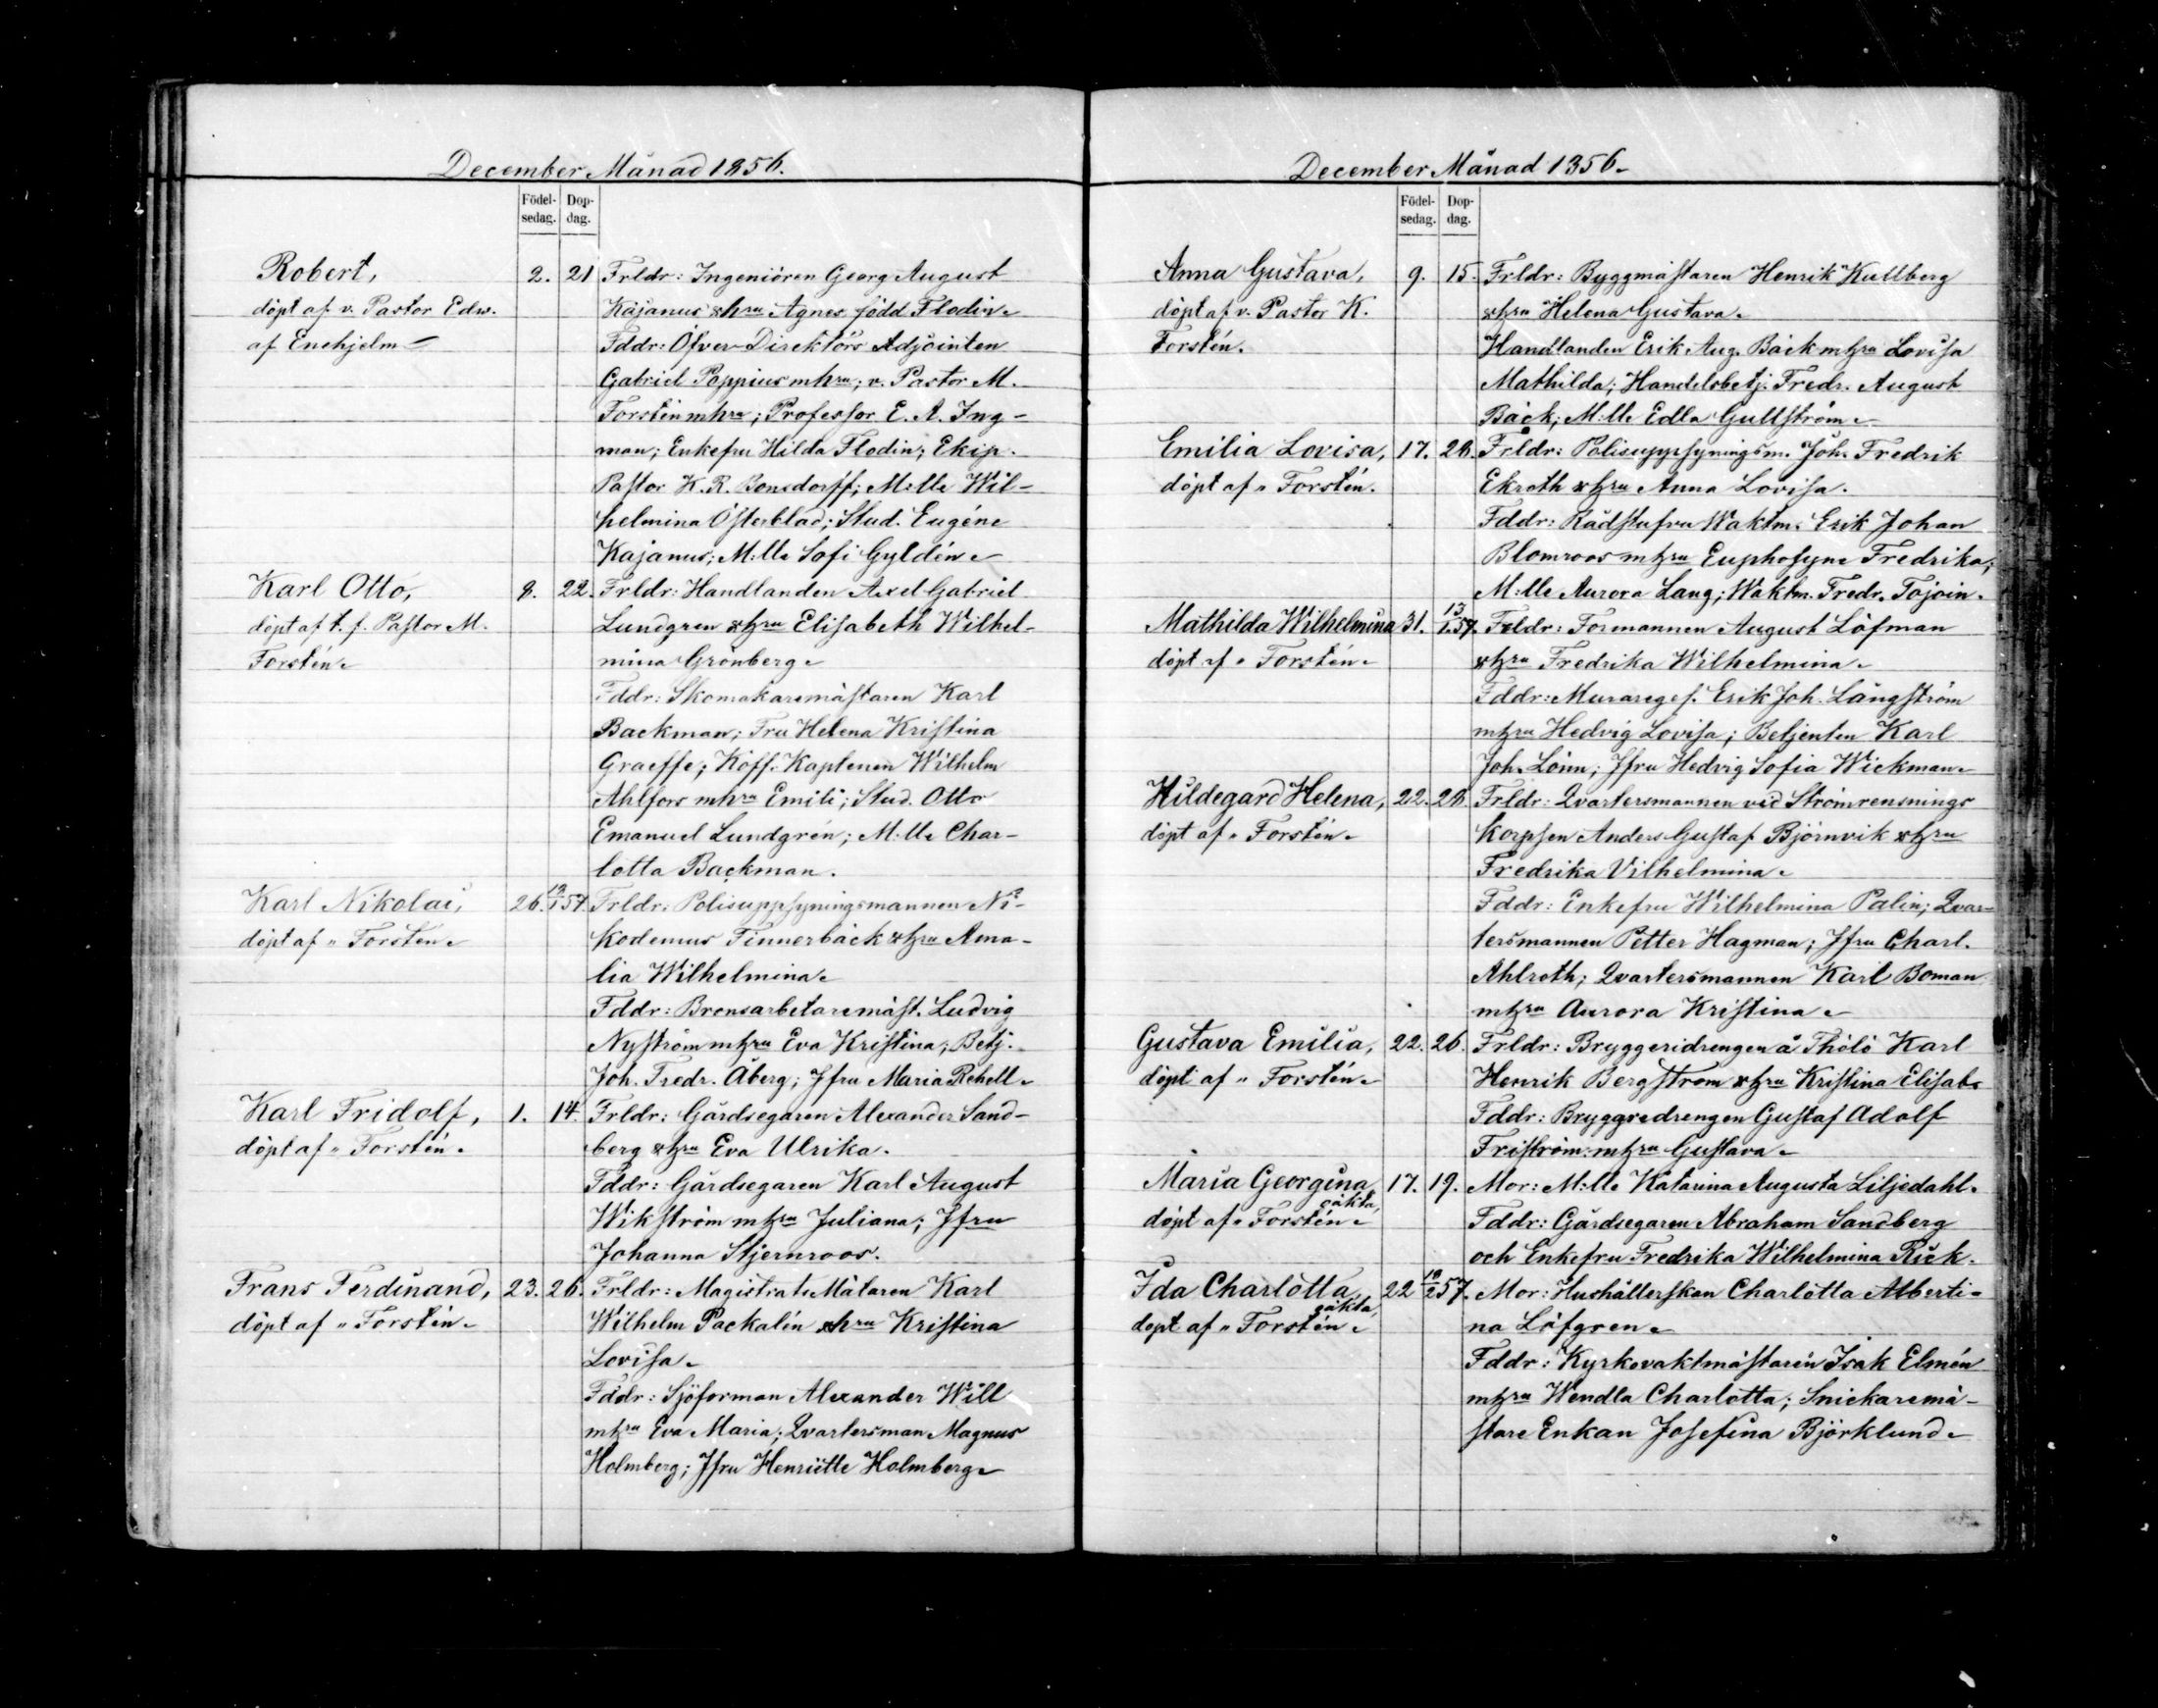 December Månad 1856.
Födel-
sedag.
Dop-
dag.
Robert, 2. 21 Frldr: Ingeniören Georg August
döpt af v. Pastor Edw. Kajanus o hru Agnes född Flodin.
af Enehjelm Fddr: Öfver-Direktörs Adjointen
Gabriel Poppius m hru; v. Pastor M.
Forstén m hru; Professor E. A. Ing-
man; Enkefru Hilda Flodin; Ekip.
Pastor K. R. Bonsdorff; M:lle Wil-
helmina Österblad; Stud. Eugéne
Kajanus; M:lle Sofi Gyldén.
Karl Otto, 8. 22. Frldr: Handlanden Axel Gabriel
döpt af t. f. Pastor M. Lundgren o hru Elisabeth Wilhel-
Forstén. mina Grönberg.
Fddr: Skomakaremästaren Karl
Backman; Fru Helena Kristina
Graeffe; Koff. Kaptenen Wilhelm
Ahlfors m hru Emili; Stud. Otto
Emanuel Lundgrén; M:lle Char-
lotta Backman.
Karl Nikolai, 26. 57. Frldr: Polisuppsyningsmannen Ni-
döpt af " Forstén. kodemus Finnerbäck o hru Ama-
lia Wilhelmina.
Fddr: Bronsarbetaremäst. Ludvig
Nyström m hru Eva Kristina; Betj.
Joh. Fredr. Åberg; Jfru Maria Rehell.
Karl Fridolf, 1. 14. Frldr: Gårdsegaren Alexander Sand-
döpt af " Forstén. berg o hru Eva Ulrika.
Fddr: Gårdsegaren Karl August
Wikström m hru Juliana; Jfru
Johanna Stjernroos.
Frans Ferdinand, 23. 26. Frldr: Magistrats Målaren Karl
döpt af " Forstén. Wilhelm Packalén o hru Kristina
Lovisa.
Fddr: Sjöforman Alexander Will
m hru Eva Maria; Qvartersman Magnus
Holmberg; Jfru Henriette Holmberg.
December Månad 1856.
Födel-
sedag.
Dop-
dag.
Anna Gustava, 9. 15. Frldr: Byggmästaren Henrik Kullberg
döpt af v. Pastor K. o hru Helena Gustava.
Forstén. Handlanden Erik Aug. Bäck m hru Lovisa
Mathilda; Handelsbetj. Fredr. August
Bäck; M:lle Edla Gullström.
Emilia Lovisa, 17. 28. Frldr: Polisuppsyningsm. Joh. Fredrik
döpt af " Forstén. Ekroth o hru Anna Lovisa.
Fddr: Rådstufvu Waktm. Erik Johan
Blomroos m hru Euphosyne Fredrika;
M:lle Aurora Lang; Waktm. Fredr. Tojoin.
Mathilda Wilhelmina 31. 13/1 57. Frldr: Formannen August Löfman
döpt af " Forstén. o hru Fredrika Wilhelmina.
Fddr: Murareges. Erik Joh. Långström
m hru Hedvig Lovisa; Betjenten Karl
Joh. Lönn; Jfru Hedvig Sofia Wickman.
Hildegard Helena, 22. 28. Frldr: Qvartersmannen vid Strömrensnings
döpt af " Forstén. korpsen Anders Gustaf Björnvik o hru
Fredrika Vilhelmina.
Fddr: Enkefru Wilhelmina Palin; Qvar-
tersmannen Petter Hagman; Jfru Charl.
Ahlroth; Qvartersmannen Karl Boman
m hru Aurora Kristina.
Gustava Emilia, 22. 26. Frldr: Bryggeridrengen å Thölö Karl
döpt af " Forstén. Henrik Bergström o hru Kristina Elisab.
Fddr: Bryggredrengen Gustaf Adolf
Friström m hru Gustava.
Maria Georgina 17. 19. Mor: M:lle Katarina Augusta Liljedahl.
oäkta,
döpt af " Forstén. Fddr: Gårdsegaren Abraham Sandberg
och Enkefru Fredrika Wilhelmina Rick.
Ida Charlotta, 22 57. Mor: Hushållerskan Charlotta Alberti-
oäkta,
döpt af " Forstén. na Löfgren.
Fddr: Kyrkovaktmästaren Isak Elmén
m hru Wendla Charlotta; Snickaremä-
stare Enkan Josefina Björklund.